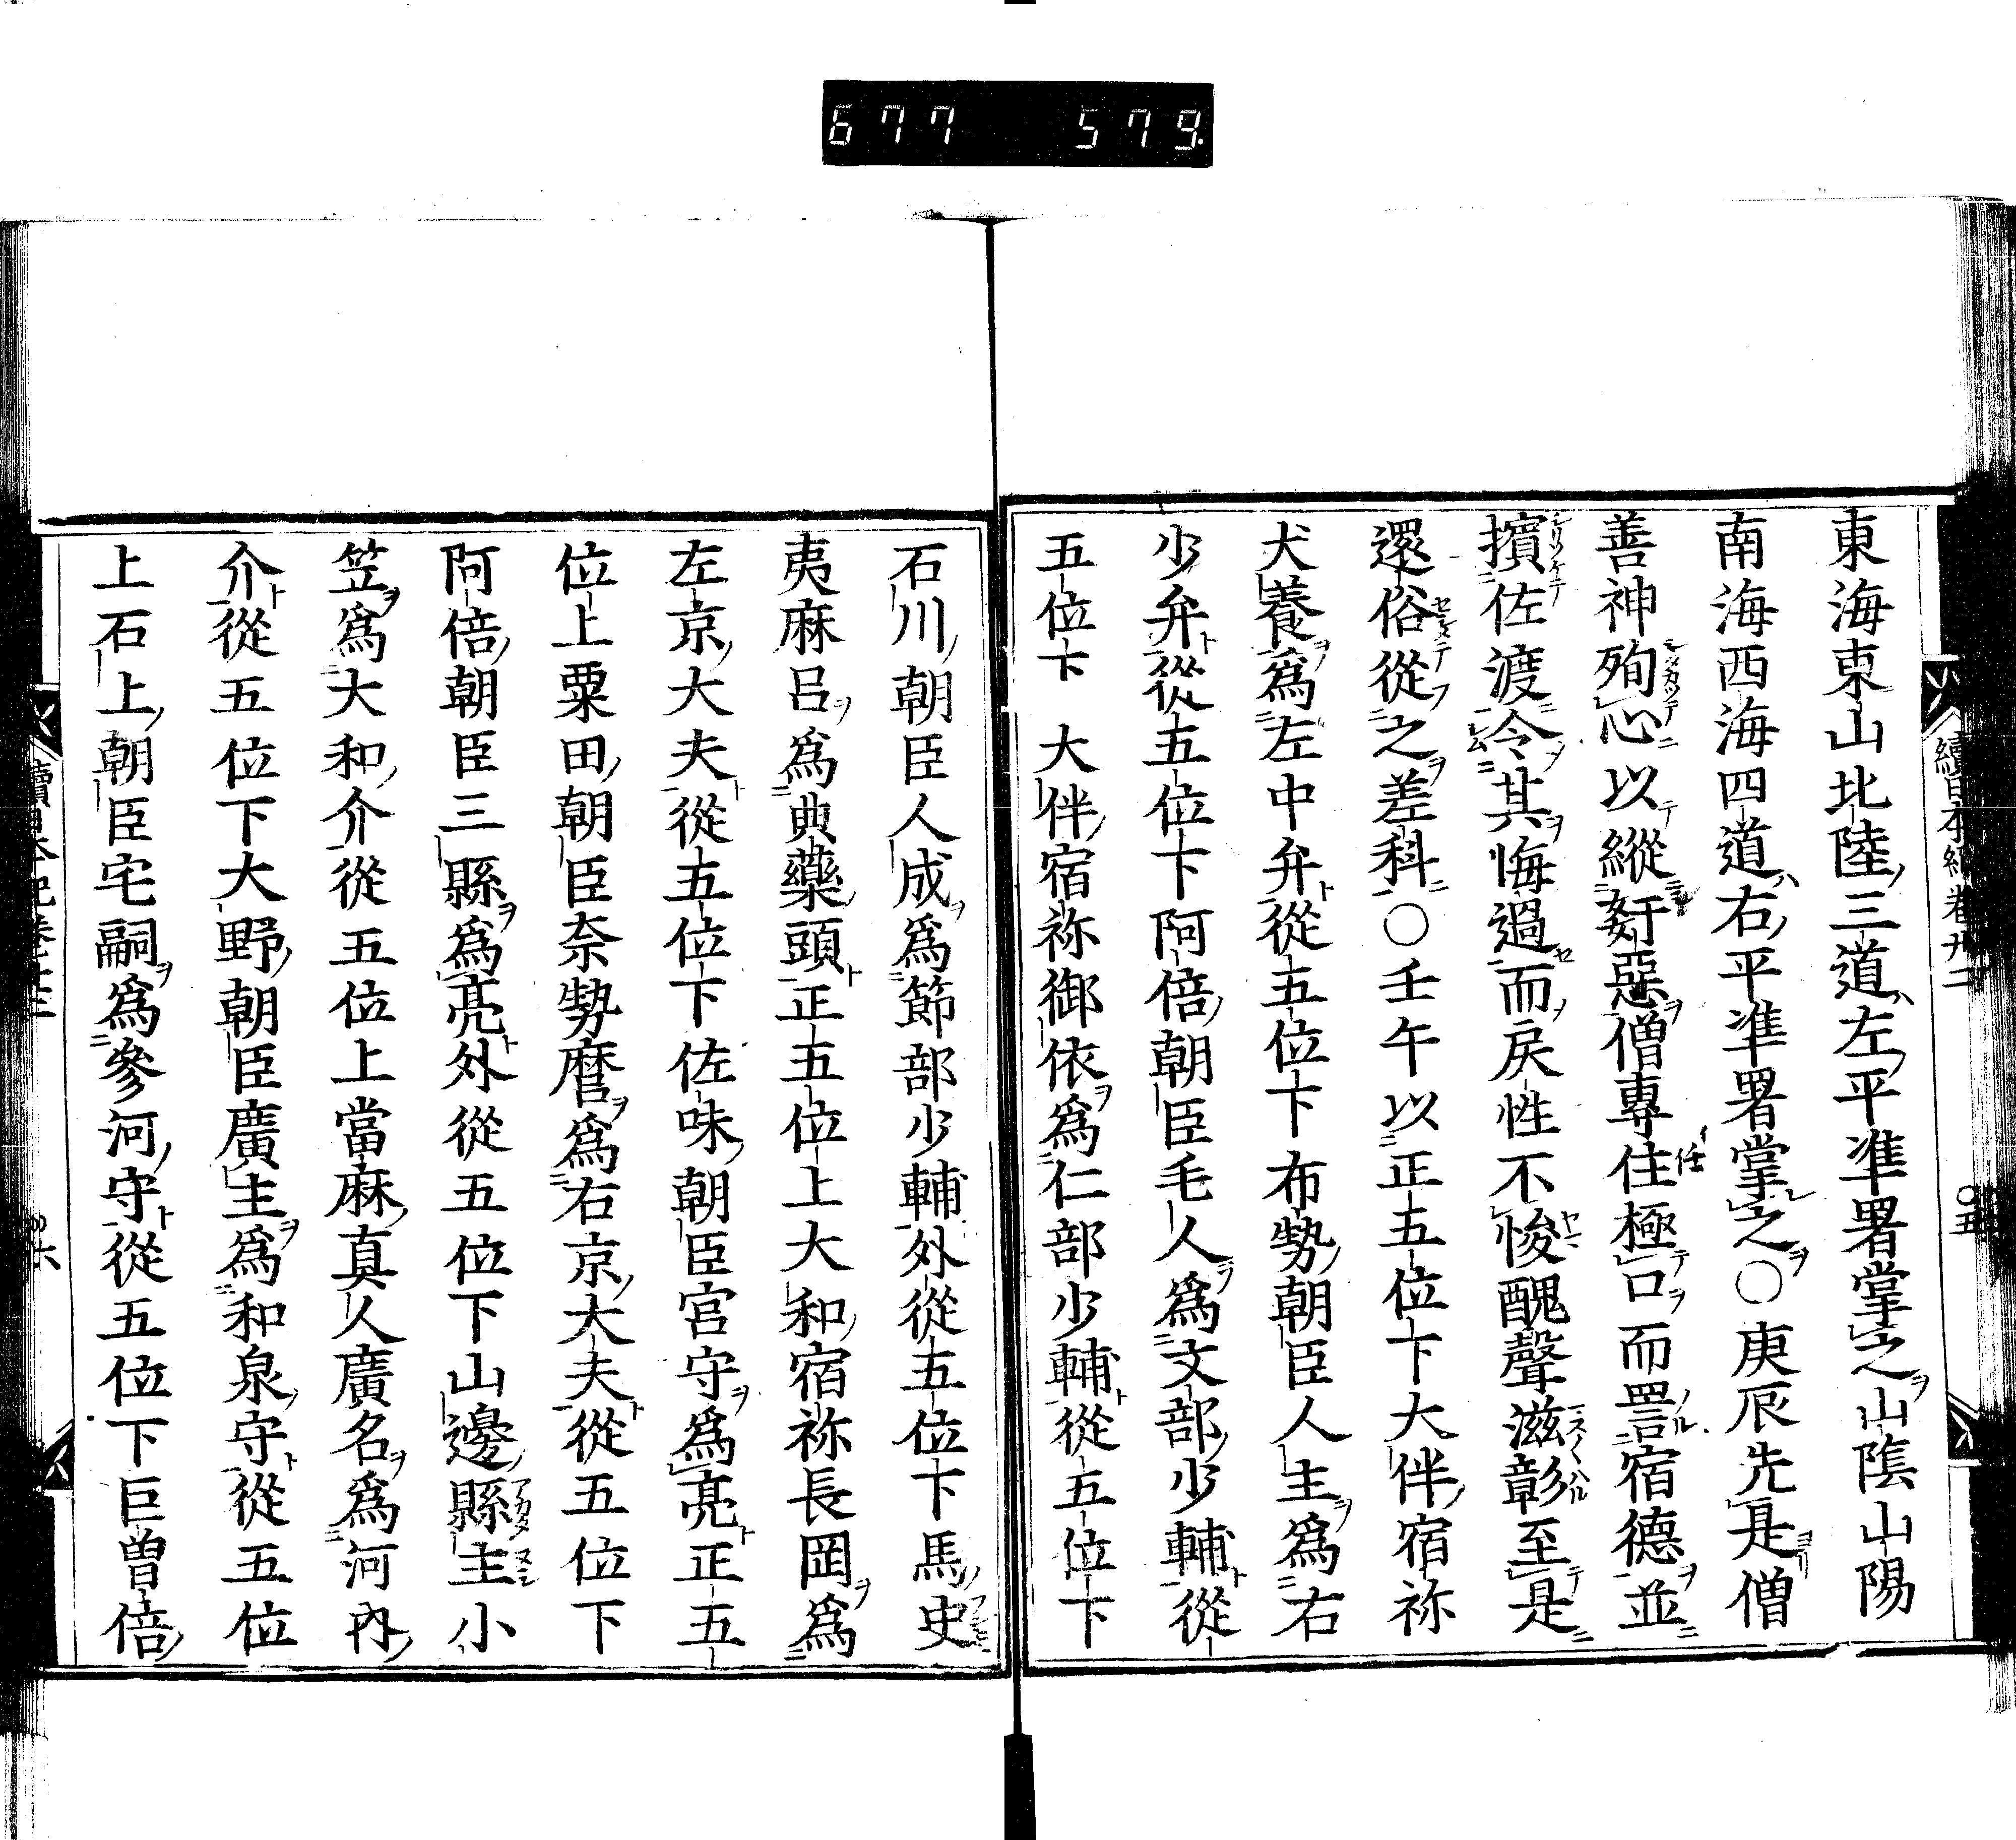 677 579
東海東山北陸三道左平準署掌之山陰山陽
南海西海四道右平準署掌之〇庚辰先是僧
善神殉心以縱姧惡僧專住極口而詈宿德並
擯佐渡令其悔過而戾性不悛醜聲滋彰至是
還俗從之差科〇壬午以正五位下大伴宿祢
犬養爲左中弁從五位下布勢朝臣人主爲右
少弁從五位下阿倍朝臣毛人爲文部少輔從
五位下　大伴宿祢御依爲仁部少輔從五位下
石川朝臣人成爲節部少輔外從五位下馬史
夷麻呂爲典藥頭正五位上大和宿祢長岡爲
左京大夫從五位下佐味朝臣宮守爲亮正五
位上粟田朝臣奈勢麿爲右京大夫從五位下
阿倍朝臣三縣爲亮外從五位下山邊縣主小
笠爲大和介從五位上當麻真人廣名爲河內
介從五位下大野朝臣廣主爲和泉守從五位
上石上朝臣宅嗣爲參河守從五位下巨曾倍